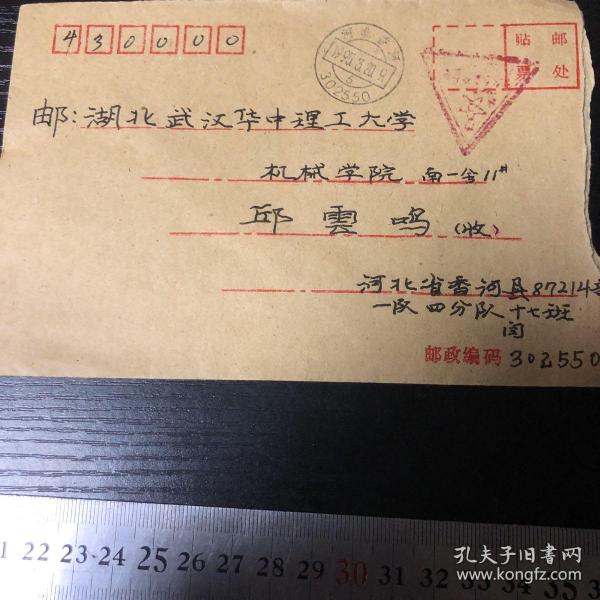 430000
贴 邮
票 处
302550
邮:湖北武汉华中理工大学
机械学院 南一舍11#
邱雲鸣(收)
河北省香河县87214
一队四分队十七班
闵
邮政编码 302550
21 22 23 24 25 26 27 28 29 30 31 32 33 34 35
孔夫子旧书网
www.kongfz.com